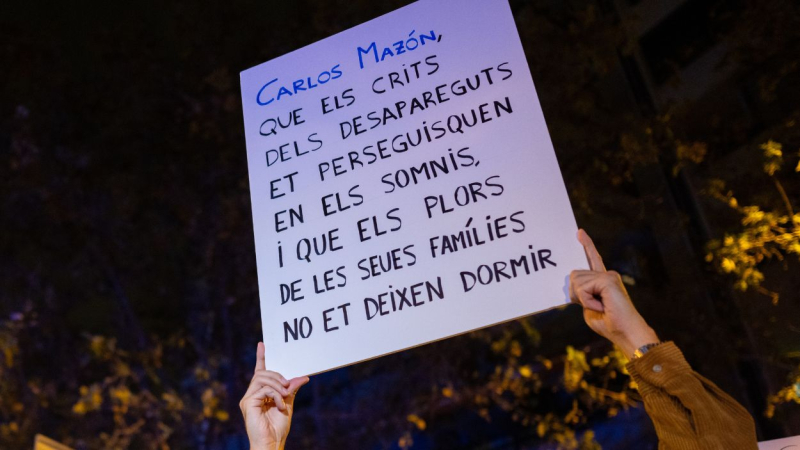 CARLOS MAZÓN,
QUE ELS CRITS
DELS DESAPAREGUTS
ET PERSEGUISQUEN
EN ELS SOMNIS,
I QUE ELS PLORS
DE LES SEUES FAMÍLIES
NO ET DEIXEN DORMIR